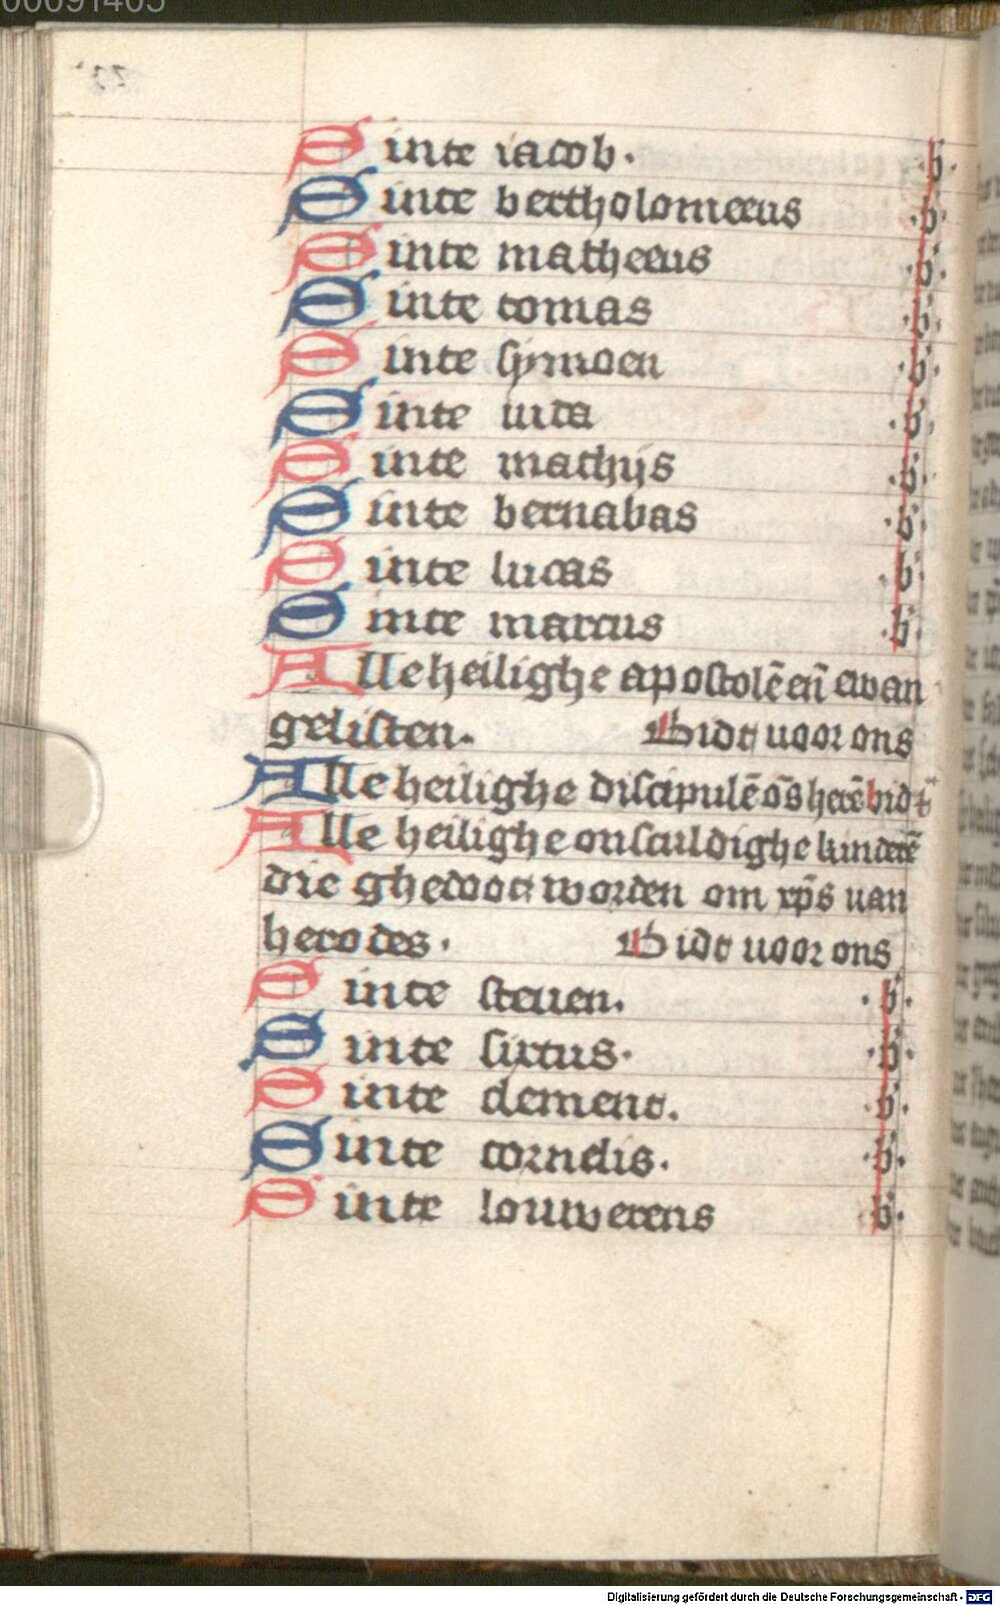 00091405
Sinte iacob. .b.
Sinte bertholomeeus .b.
Sinte matheeus .b.
Sinte tomas .b.
Sinte symoen .b.
Sinte iuda .b.
Sinte mathijs .b.
Sinte bernabas .b.
Sinte lucas .b.
Sinte marcus .b.
Alle heilighe apostolē eñ ewan
gelisten. Bidt uoor ons
Alle heilighe discipulē ōs herē bidt
Alle heilighe onsculdighe kinderē
die ghedoot worden om xp̄s uan
herodes. Bidt uoor ons
Sinte steuen. .b.
Sinte sixtus. .b.
Sinte clement. .b.
Sinte cornelis. .b.
Sinte louwerens .b.
Digitalisierung gefördert durch die Deutsche Forschungsgemeinschaft - DFG